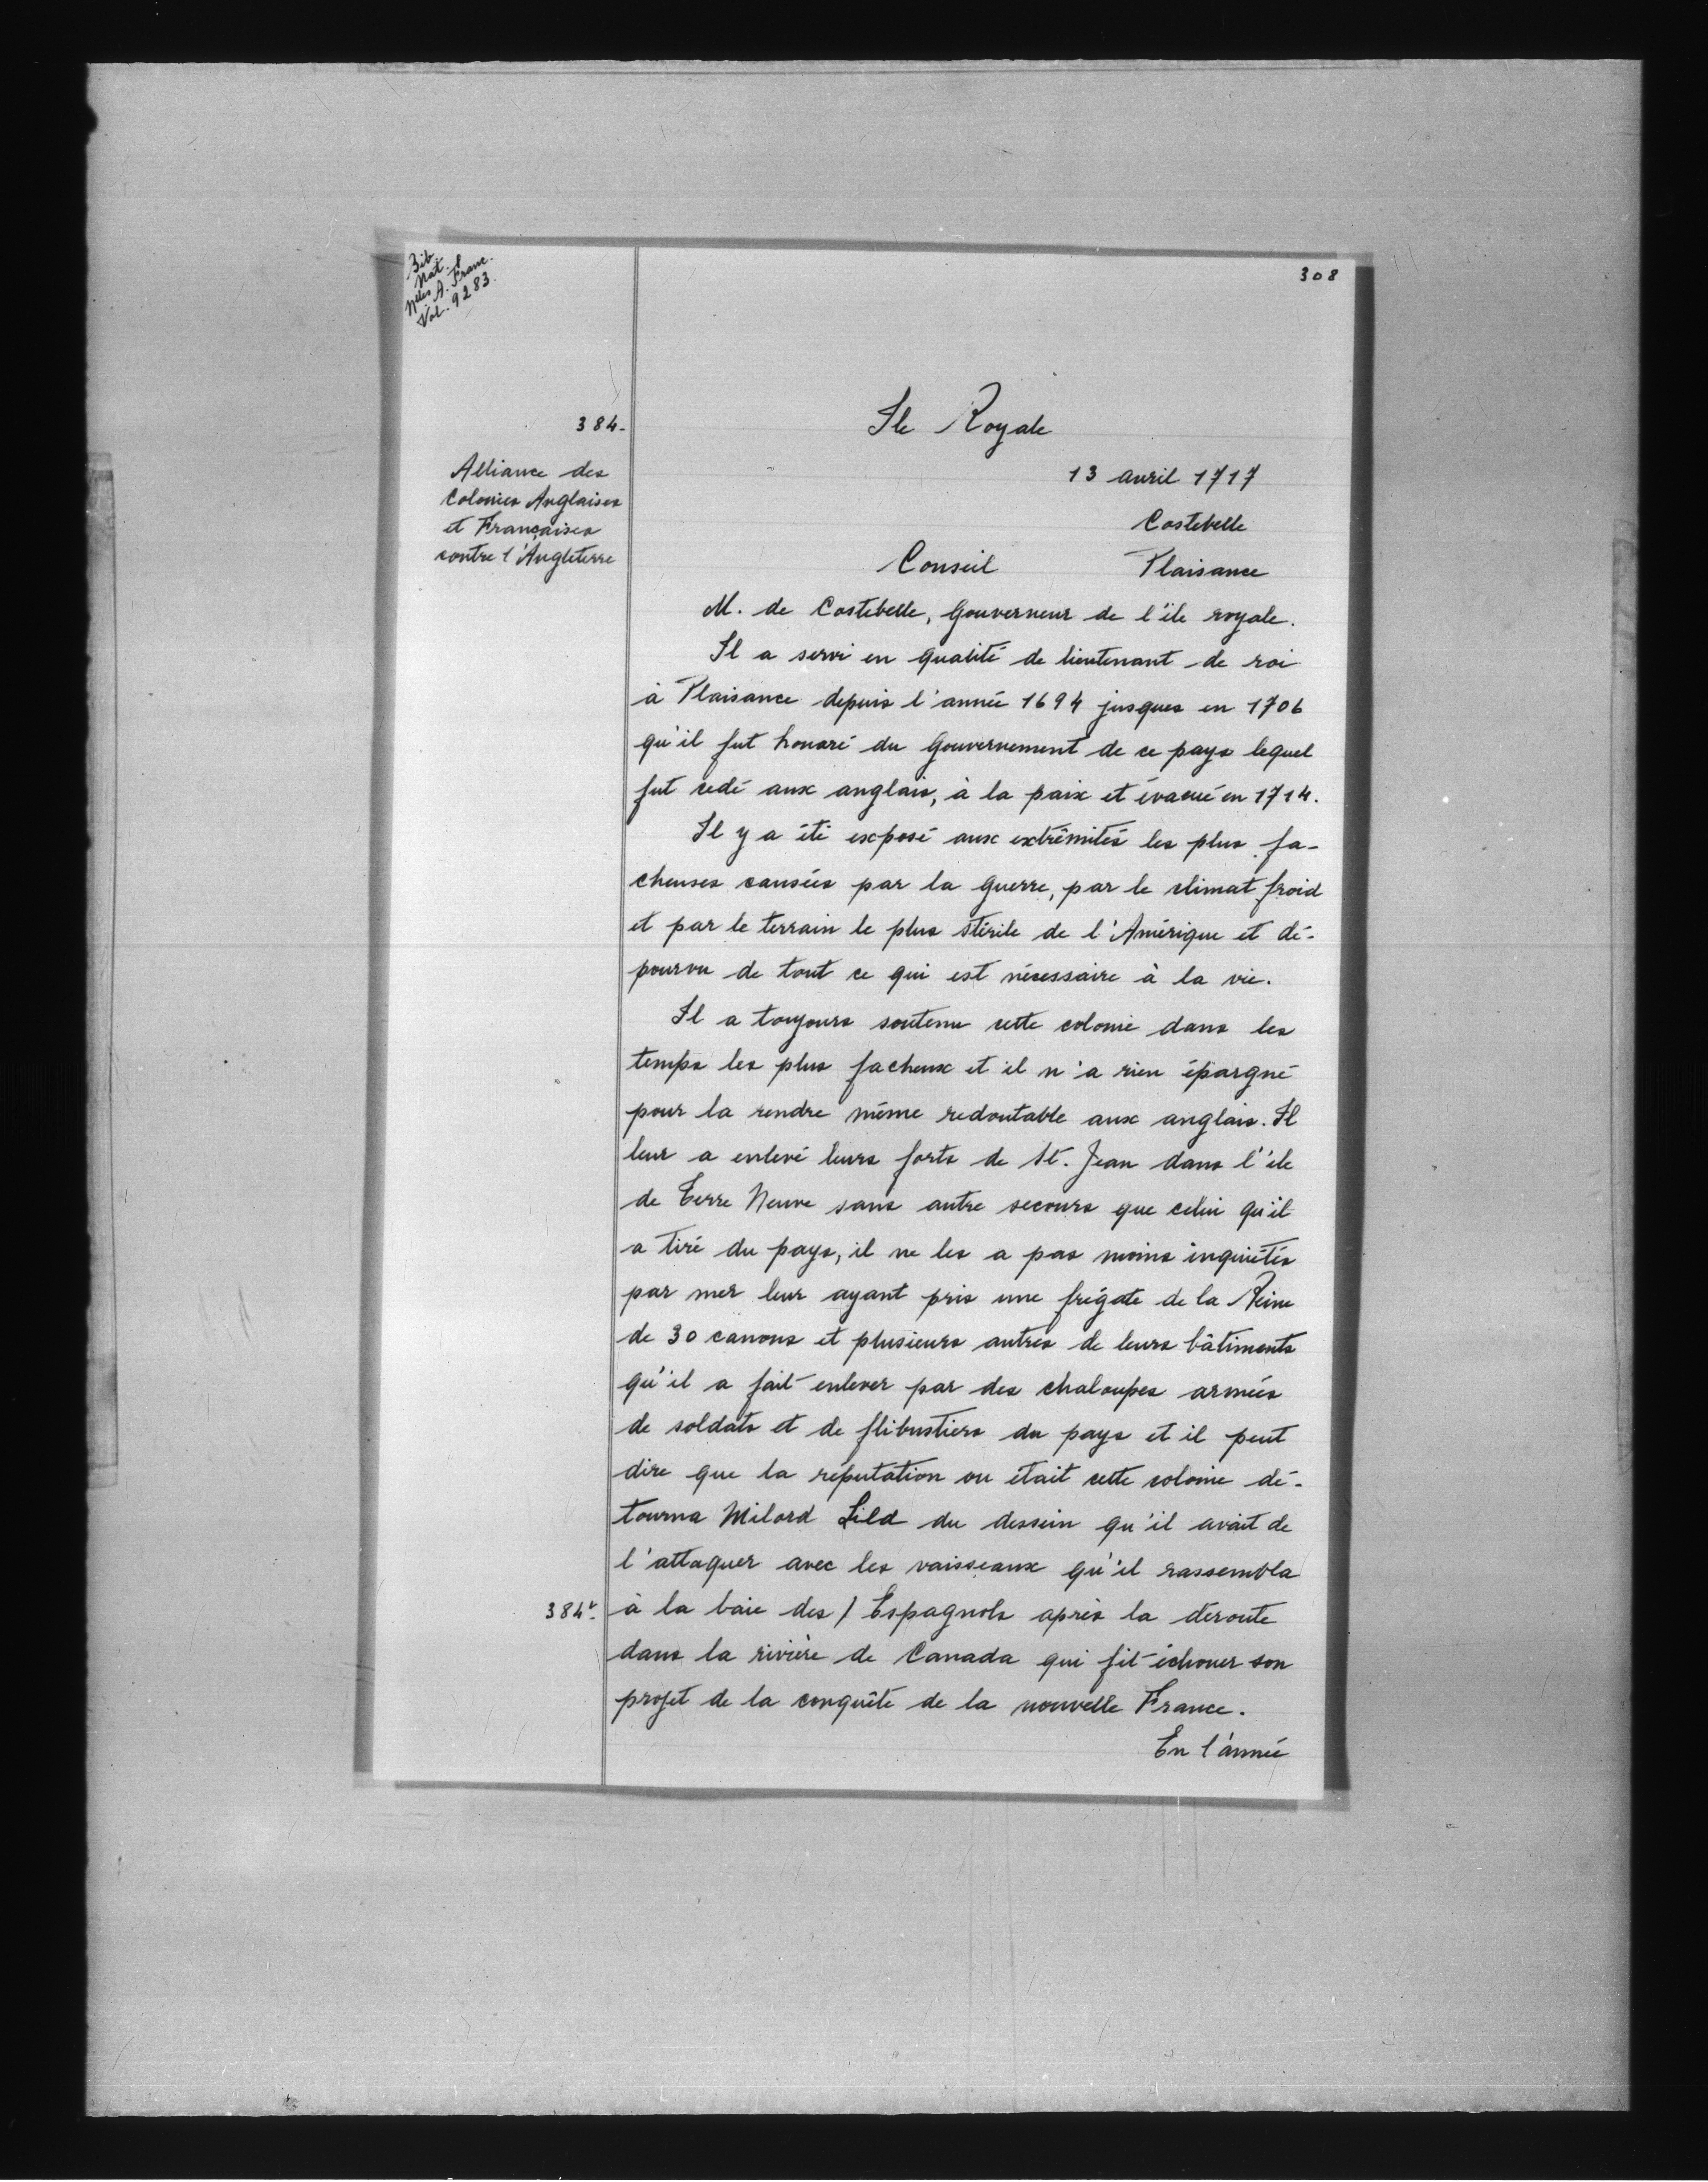 Bib.
Nat.
Nelles A. Franc.
Vol. 9283.
308
384-
Ile Royale
Alliance des
Colonies Anglaises
et Françaises
contre l'Angleterre
13 avril 1717
Costebelle
Conseil Plaisance
M. de Costebelle, Gouverneur de l'île royale.
Il a servi en qualité de lieutenant de roi
à Plaisance depuis l'année 1694 jusques en 1706
qu'il fut honoré du Gouvernement de ce pays lequel
fut cedé aux anglais, à la paix et évacué en 1714.
Il y a été exposé aux extrêmités les plus fa-
cheuses causées par la guerre, par le climat froid
et par le terrain le plus stérile de l'Amérique et dé-
pourvu de tout ce qui est nécessaire à la vie.
Il a toujours soutenu cette colonie dans les
temps les plus facheux et il n'a rien épargné
pour la rendre même redoutable aux anglais. Il
leur a enlevé leurs forts de St. Jean dans l'île
de Terre Neuve sans autre secours que celui qu'il
a tiré du pays, il ne les a pas moins inquiétés
par mer leur ayant pris une frégate de la Reine
de 30 canons et plusieurs autres de leurs bâtiments
qu'il a fait enlever par des chaloupes armées
de soldats et de flibustiers du pays et il peut
dire que la réputation ou était cette colonie dé-
tourna Milord Lild du dessein qu'il avait de
l'attaquer avec les vaisseaux qu'il rassembla
384v. à la baie des / Espagnols après la déroute
dans la rivière de Canada qui fit échouer son
projet de la conquête de la nouvelle France.
En l'année